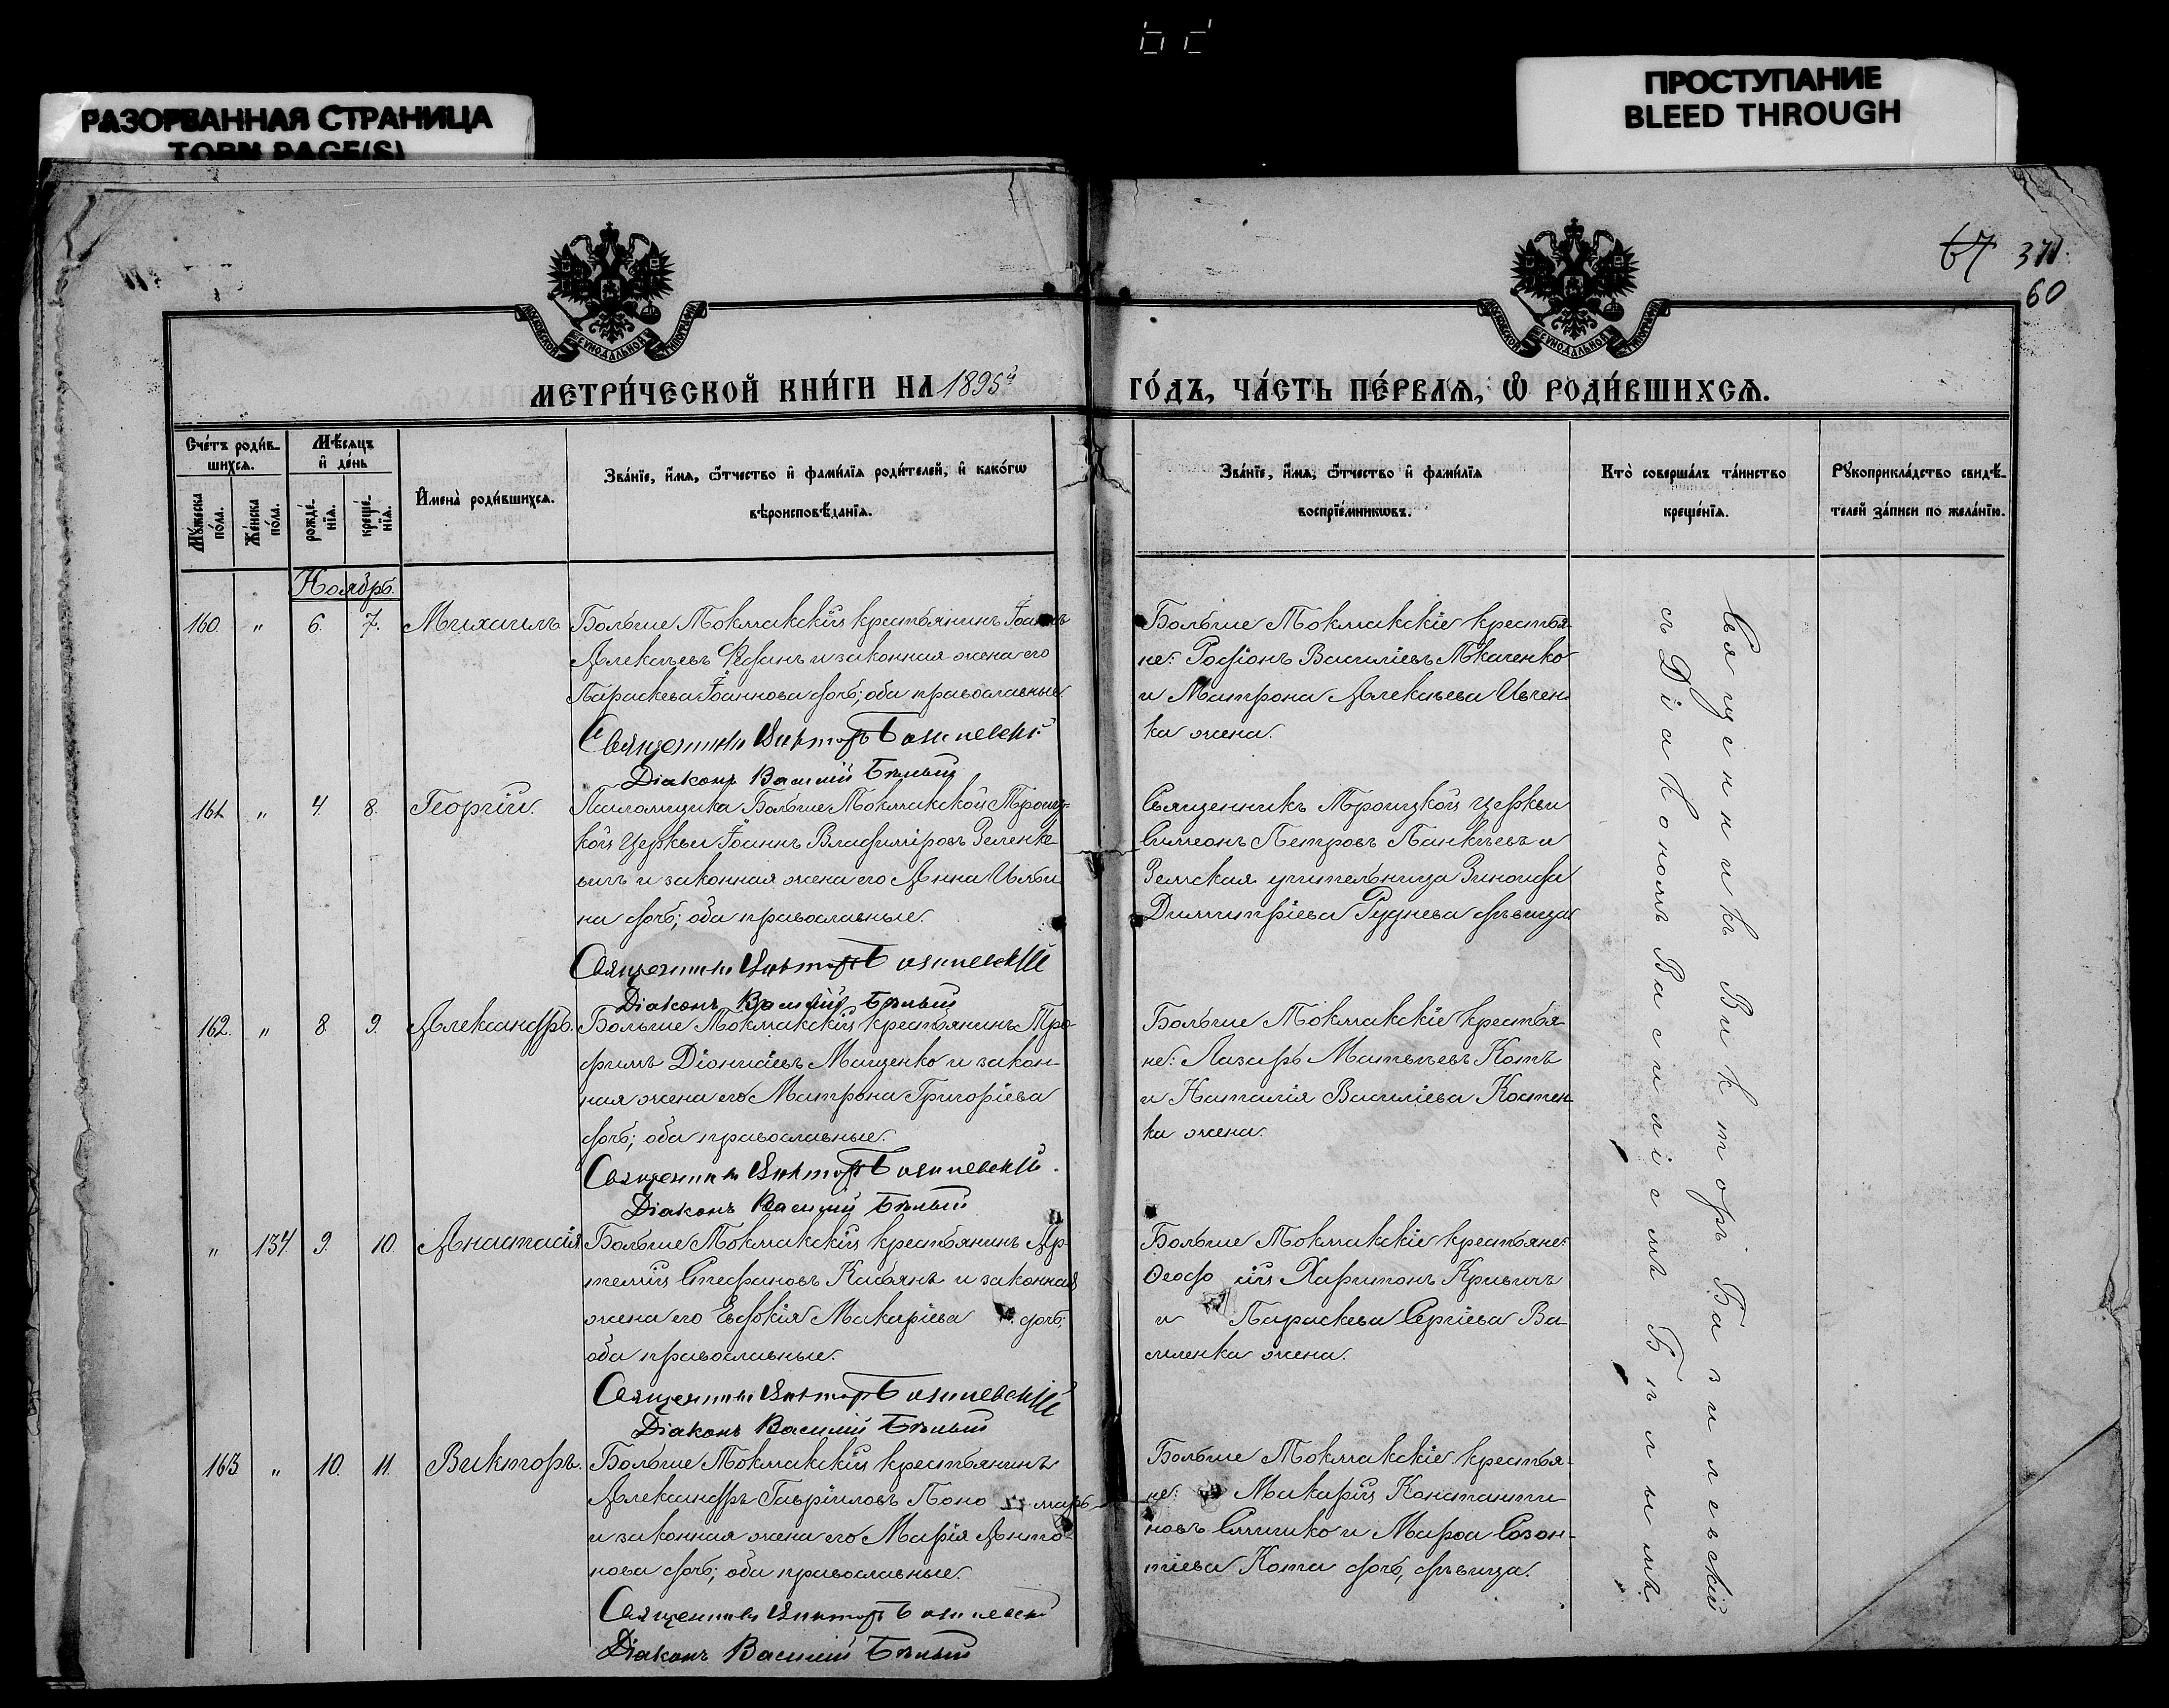 РАЗОРВАННАЯ СТРАНИЦА
TORN PAGE(S)
ПРОСТУПАНИЕ
BLEED THROUGH
67 371.
60
МОСКОВСКОЙ СѴНОДАЛЬНОЙ ТИПОГРАФІИ
МОСКОВСКОЙ СѴНОДАЛЬНОЙ ТИПОГРАФІИ
МЕТРИ́ЧЕСКОЙ КНИ́ГИ НА 1895й ГО́ДЪ, ЧА́СТЬ ПЕ́РВАѦ, Ѽ РОДИ́ВШИХСѦ.
Сче́тъ роди́в-
шихсѧ.
Мꙋжеска по́ла.
Же́нска по́ла.
Мѣ́сѧцъ
и҆ де́нь
рожде́-
нїѧ.
креще́-
нїѧ.
И҆мена̀ роди́вшихсѧ.
Зва́нїе, и҆́мѧ, ѻ҆́тчество и҆ фами́лїѧ роди́телей, и҆ како́гѡ
вѣроисповѣ́данїѧ.
Зва́нїе, и҆́мѧ, ѻ҆́тчество и҆ фами́лїѧ
воспрїе́мникѡвъ.
Кто̀ соверша́лъ та́инство
креще́нїѧ.
Рꙋкоприкла́дство свидѣ́-
телей за́писи по жела́нїю.
Ноябрь.
160. " 6. 7. Михаилъ
Больше Токмакскій крестьянинъ Іоаннъ
Алексѣевъ и законная жена его
Параскева Іоаннова дочь; оба православные
Священникъ Викторъ Базилевскій
Діаконъ Василій Бѣлый
Больше Токмакскіе крестья-
не: Родіонъ Василіевъ Ткаченко
и Матрона Алексѣева Ивчен-
ка жена.
161. " 4. 8. Георгій.
Псаломщика Больше Токмакской Троиц-
кой Церкви Іоаннъ Владиміровъ Зеленке-
вичъ и законная жена его Анна Ильи-
на дочь; оба православные.
Священникъ Викторъ Базилевскій
Діаконъ Василій Бѣлый
Священникъ Троицкой церкви
Симеонъ Петровъ Панкѣевъ и
Земская учительница Зинаида
Димитріева Руднева дѣвица
162. " 8. 9. Александръ.
Больше Токмакскій крестьянинъ Тро-
фимъ Діонисіевъ Мащенко и закон-
ная жена его Матрона Григоріева
дочь; оба православные.
Священникъ Викторъ Базилевскій.
Діаконъ Василій Бѣлый
Больше Токмакскіе крестья-
не: Лазарь Матѳѣевъ Котъ
и Наталія Василіева Костен-
ка жена.
" 134. 9. 10. Анастасія.
Больше Токмакскій крестьянинъ Ар-
темій Стефановъ Кабянъ и законная
жена его Евдокія Макаріева дочь;
оба православные.
Священникъ Викторъ Базилевскій
Діаконъ Василій Бѣлый
Больше Токмакскіе крестьяне:
Харитонъ Кривичъ
и Параскева Сергіева Ва-
силенка жена.
163. " 10. 11. Викторъ.
Больше Токмакскій крестьянинъ
Александръ Гавріиловъ Поно марь
и законная жена его Марія Анто-
нова дочь; оба православные.
Священникъ Викторъ Базилевскій
Діаконъ Василій Бѣлый
Больше Токмакскіе крестья-
не: Макарій Константи-
новъ и Марѳа Созон-
тіева Кота дочь, дѣвица.
Священникъ Викторъ Базилевскій
съ Діакономъ Василіемъ Бѣлымъ